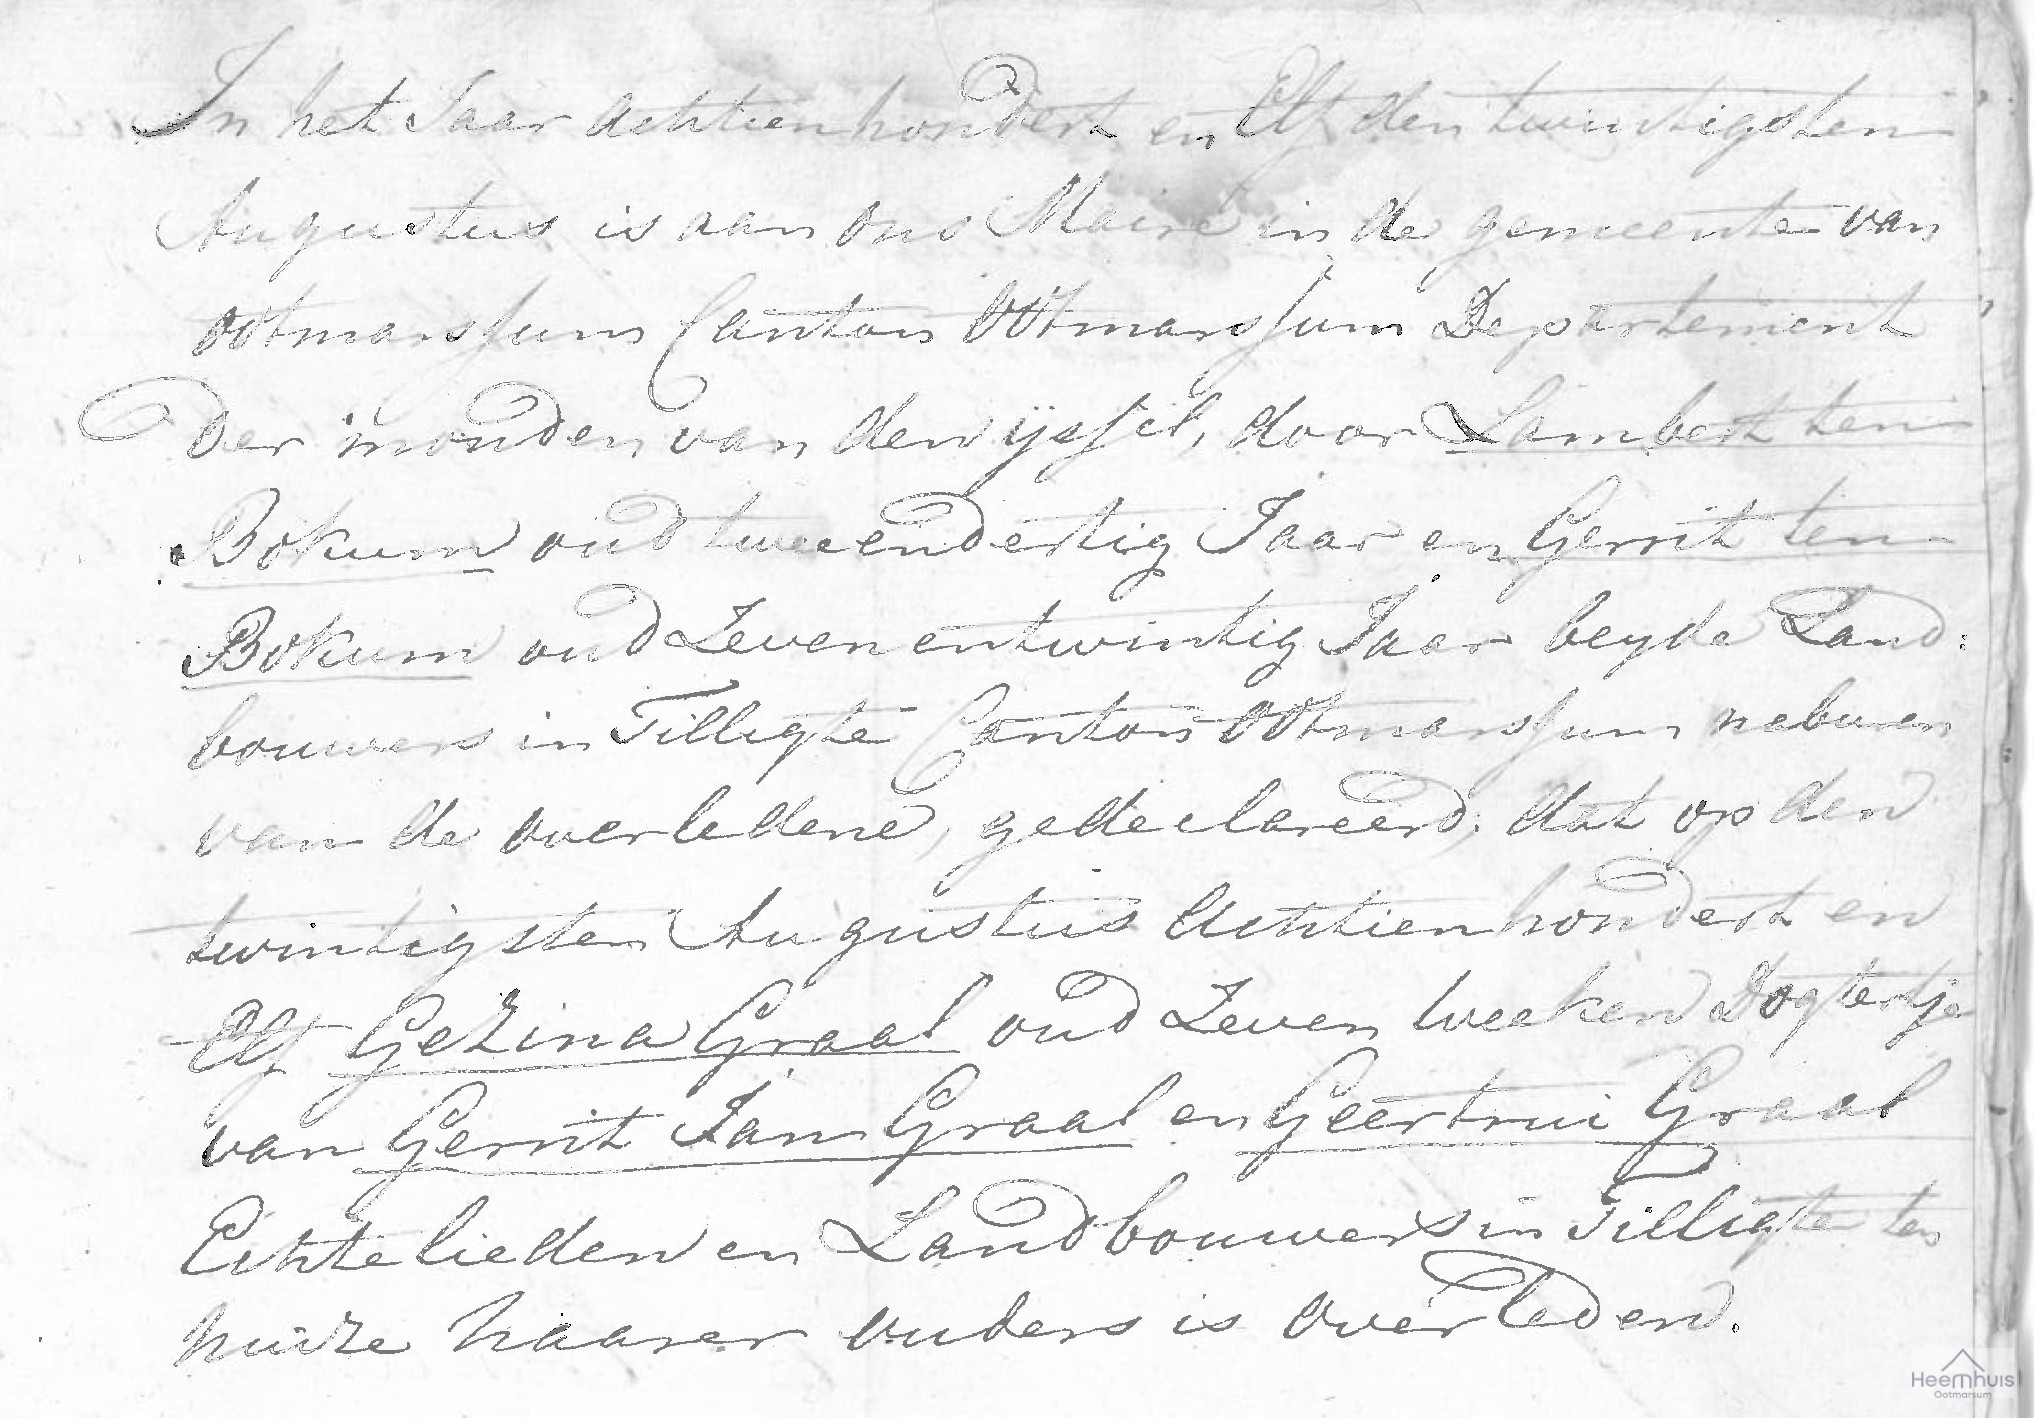 In het Jaar Achtien hondert en Elf den twintigsten
Augustus is aan ons Maire in de gemeente van
Ootmarssum Canton Ootmarssum Departement
Der monden van den ijssel, door Lambert ten
Bokum oud tweeendertig Jaar en Gerrit ten
Bokum oud Zevenentwintig Jaar beyde Land:
bouwers in Tilligte Canton Ootmarssum naburen
van de overledene, gedeclareerd, dat op den
twintigsten Augustus Achtien hondert en
Elf Gezina Graal oud Zeven weeken Dogtertje
van Gerrit Jan Graal en Geertrui Graal
Echtelieden en Landbouwers in Tilligte ten
huize haarer ouders is overleden.
Heemhuis
Ootmarsum